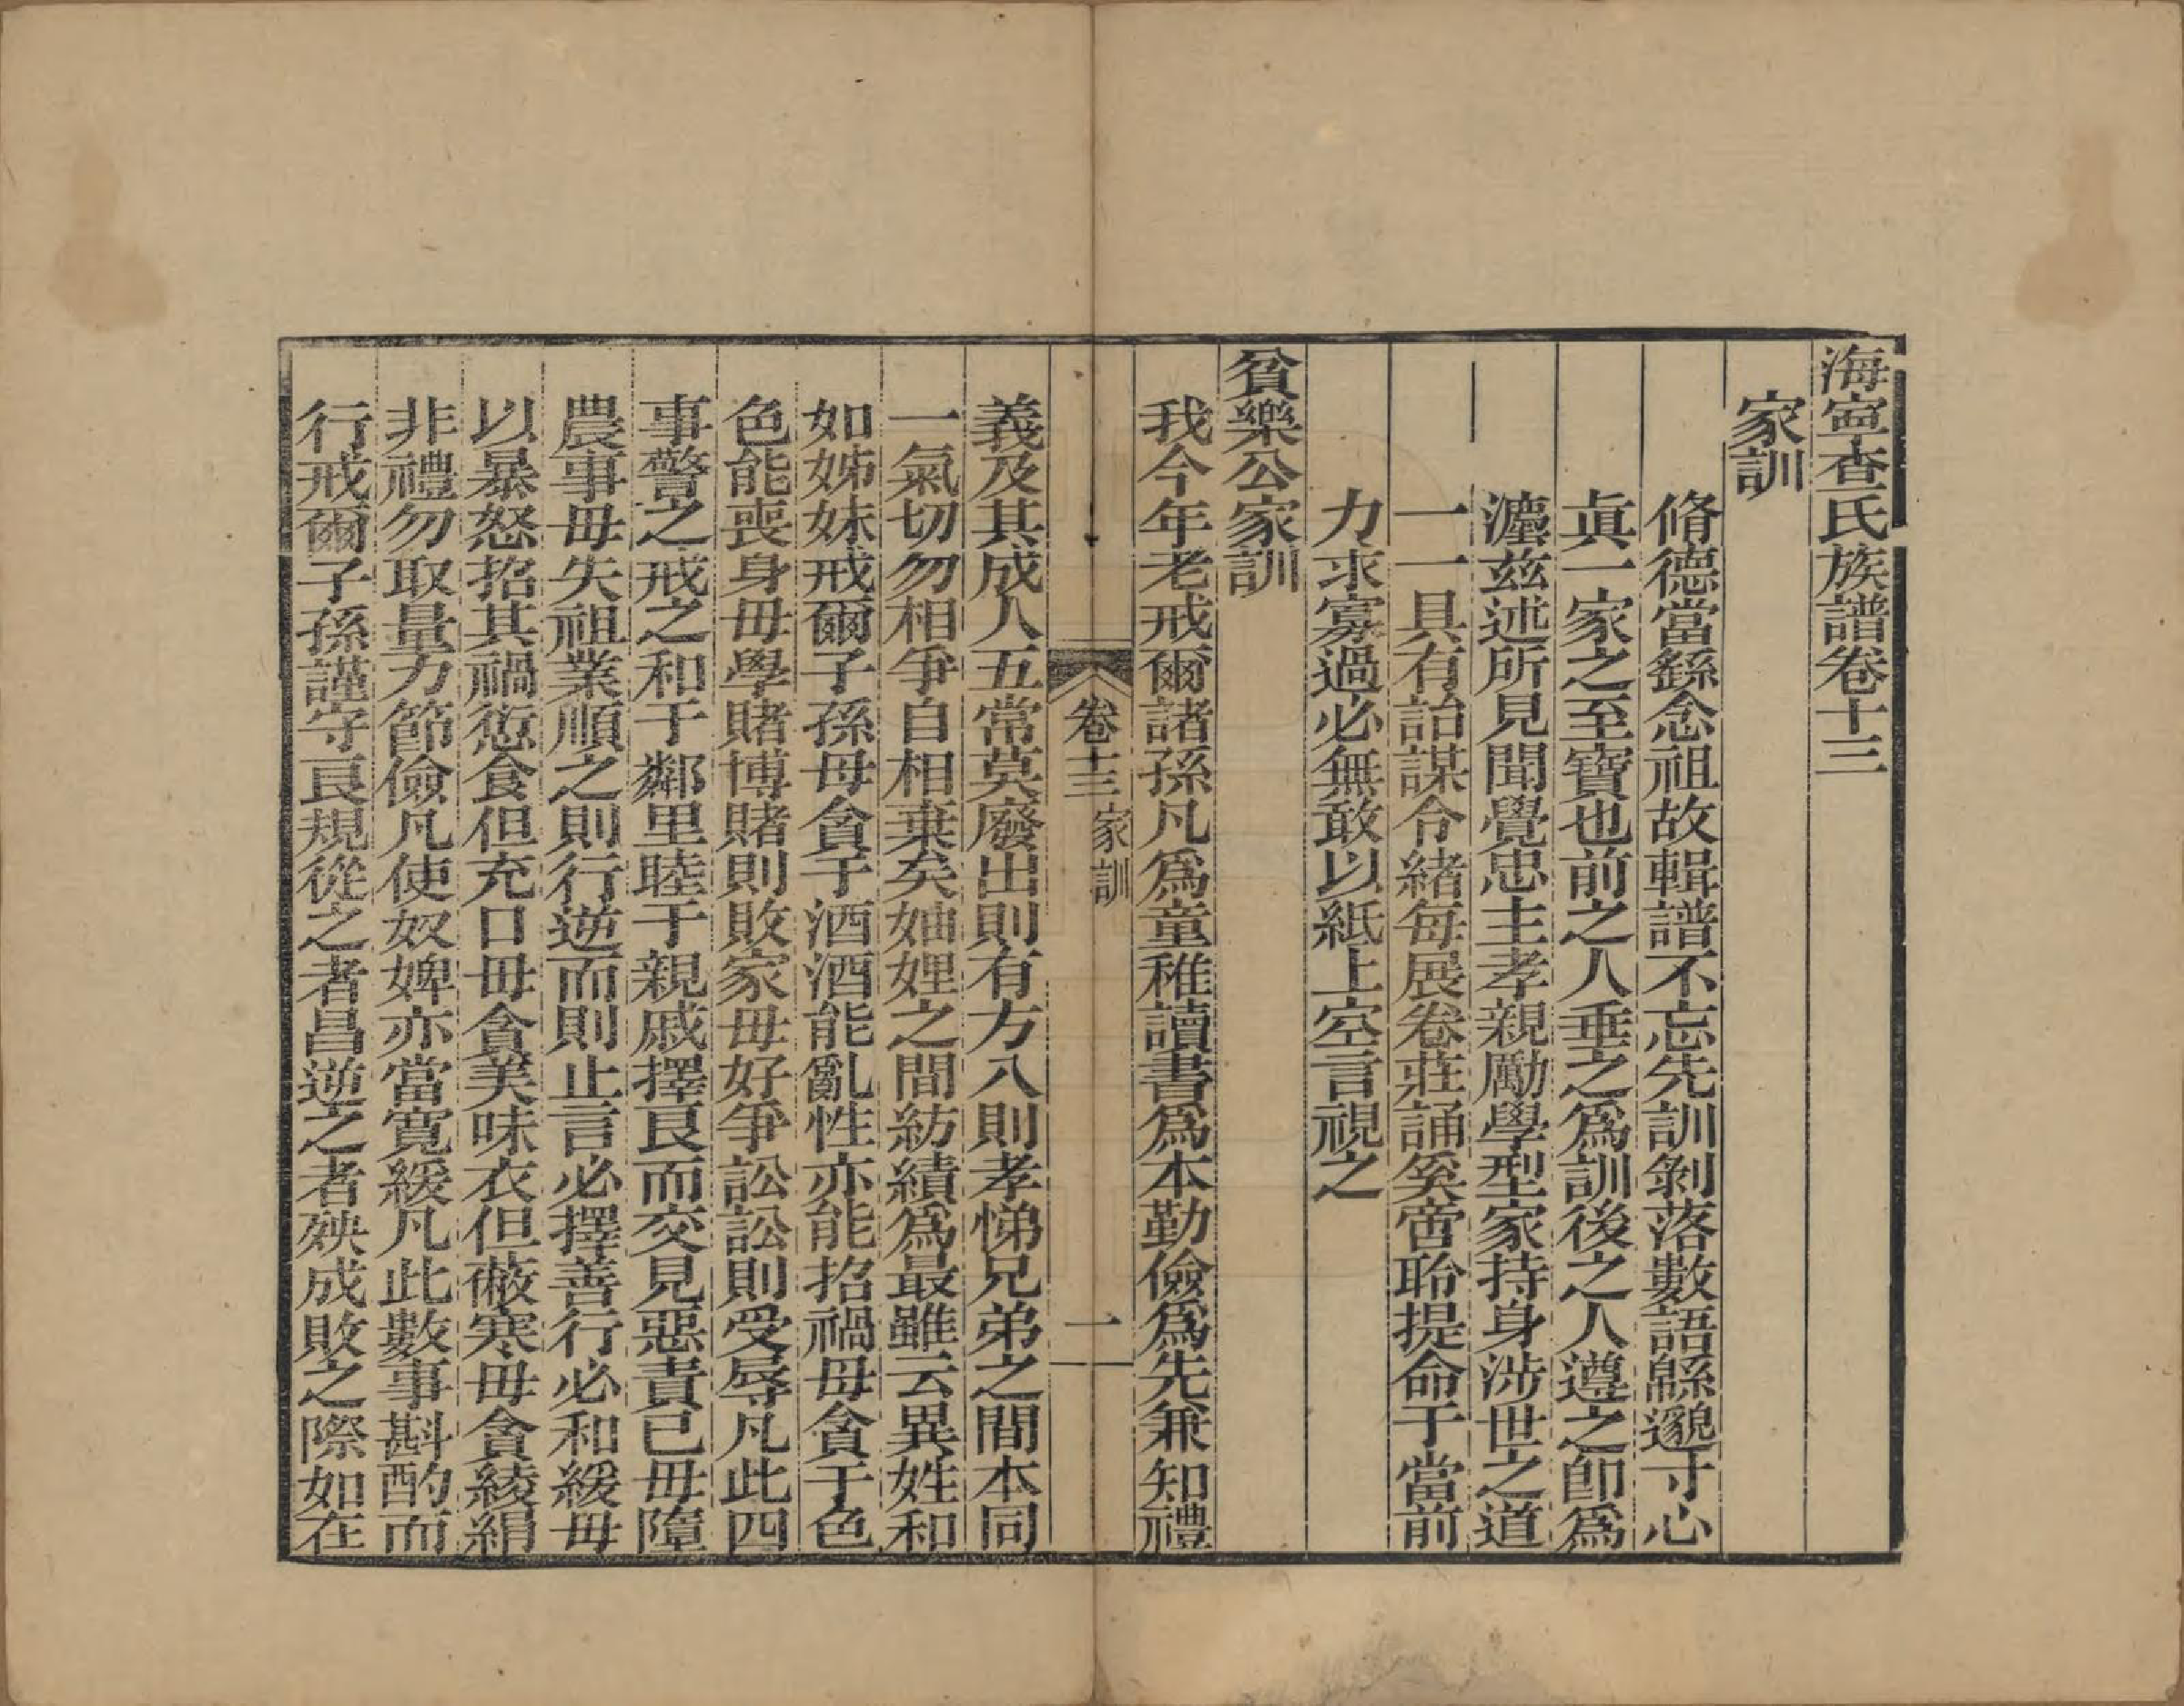 海寧查氏族譜卷十三
家訓
脩德當繇念祖故輯譜不忘先訓剝落數語緜邈寸心
眞一家之至寶也前之人垂之爲訓後之人遵之卽爲
瀍兹述所見聞覺忠主孝親勵學型家持身涉世之道
一一具有詒謀令緒每展卷莊誦奚啻聆提命于當前
力求寡過必無敢以紙上空言視之
貧樂公家訓
我今年老戒爾諸孫凡爲童稚讀書爲本勤儉爲先兼知禮
卷十三 家訓 一
義及其成人五常莫廢出則有方入則孝悌兄弟之間本同
一氣切勿相爭自相棄矣妯娌之間紡績爲最雖云異姓和
如姊妹戒爾子孫毋貪于酒酒能亂性亦能招禍毋貪于色
色能喪身毋學賭博賭則敗家毋好爭訟訟則受辱凡此四
事警之戒之和于鄰里睦于親戚擇良而交見惡責已毋隳
農事毋失祖業順之則行逆而則止言必擇善行必和緩毋
以暴怒招其禍愆食但充口毋貪美味衣但蔽寒毋貪綾絹
非禮勿取量力節儉凡使奴婢亦當寬緩凡此數事斟酌而
行戒爾子孫謹守良規從之者昌逆之者殃成敗之際如在